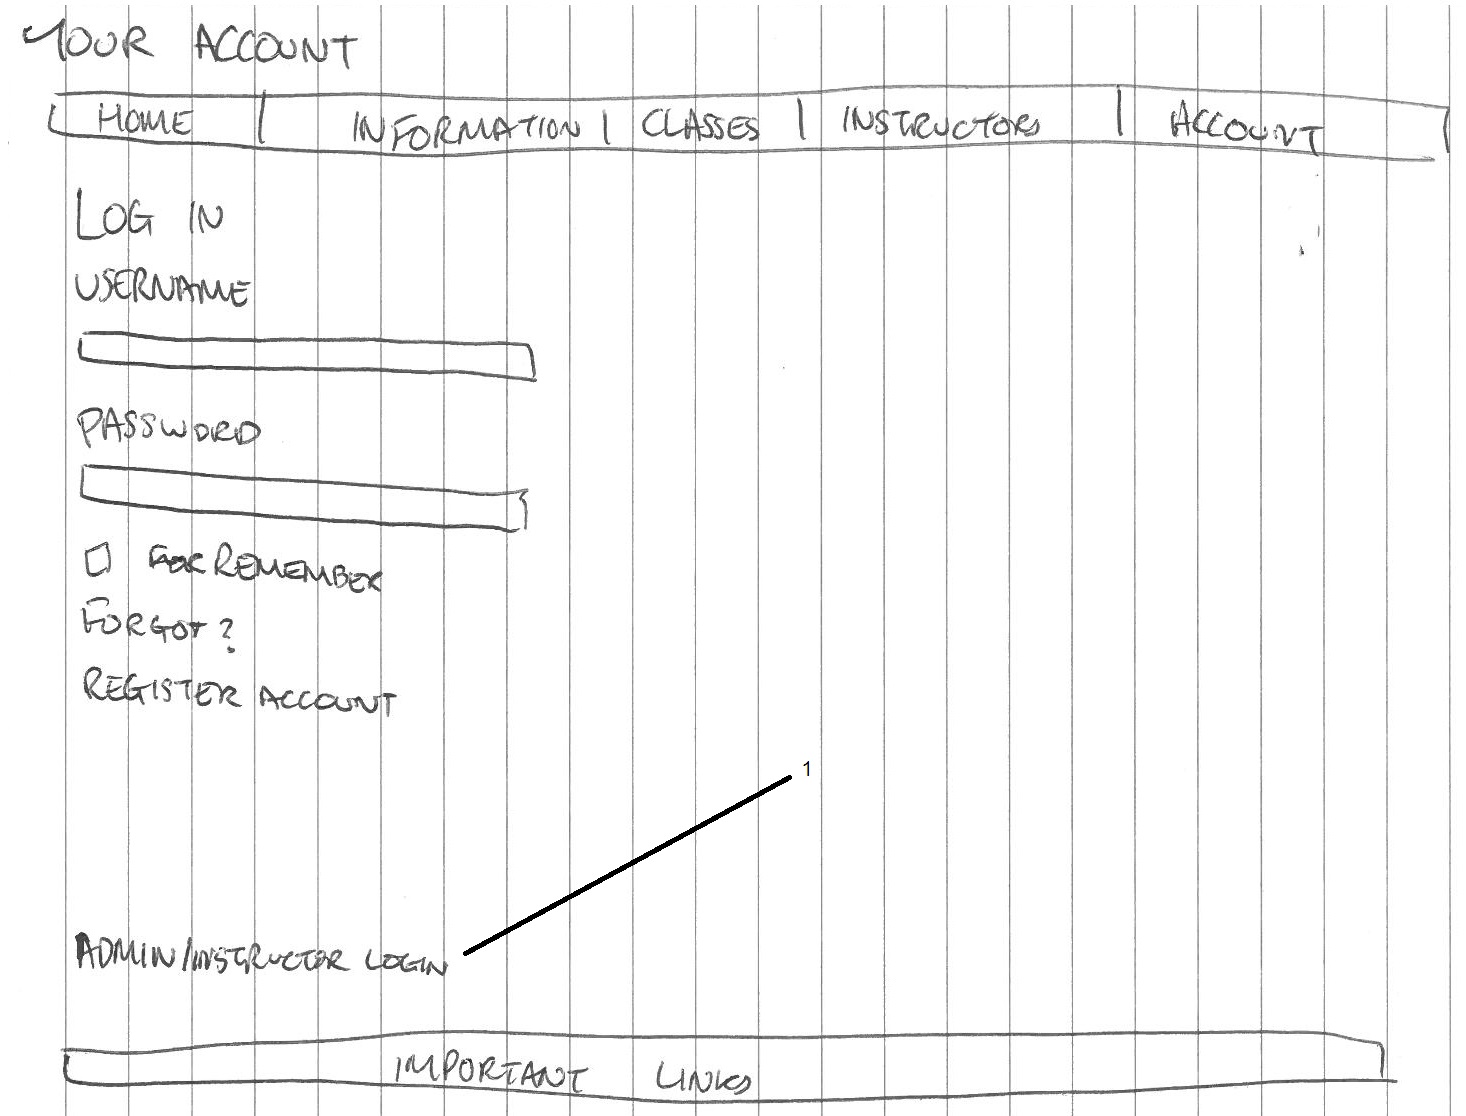 YOUR ACCOUNT
HOME INFORMATION CLASSES INSTRUCTORS ACCOUNT
LOG IN
USERNAME
PASSWORD
FOR REMEMBER
FORGOT?
REGISTER ACCOUNT
1
ADMIN/INSTRUCTOR LOGIN
IMPORTANT LINKS